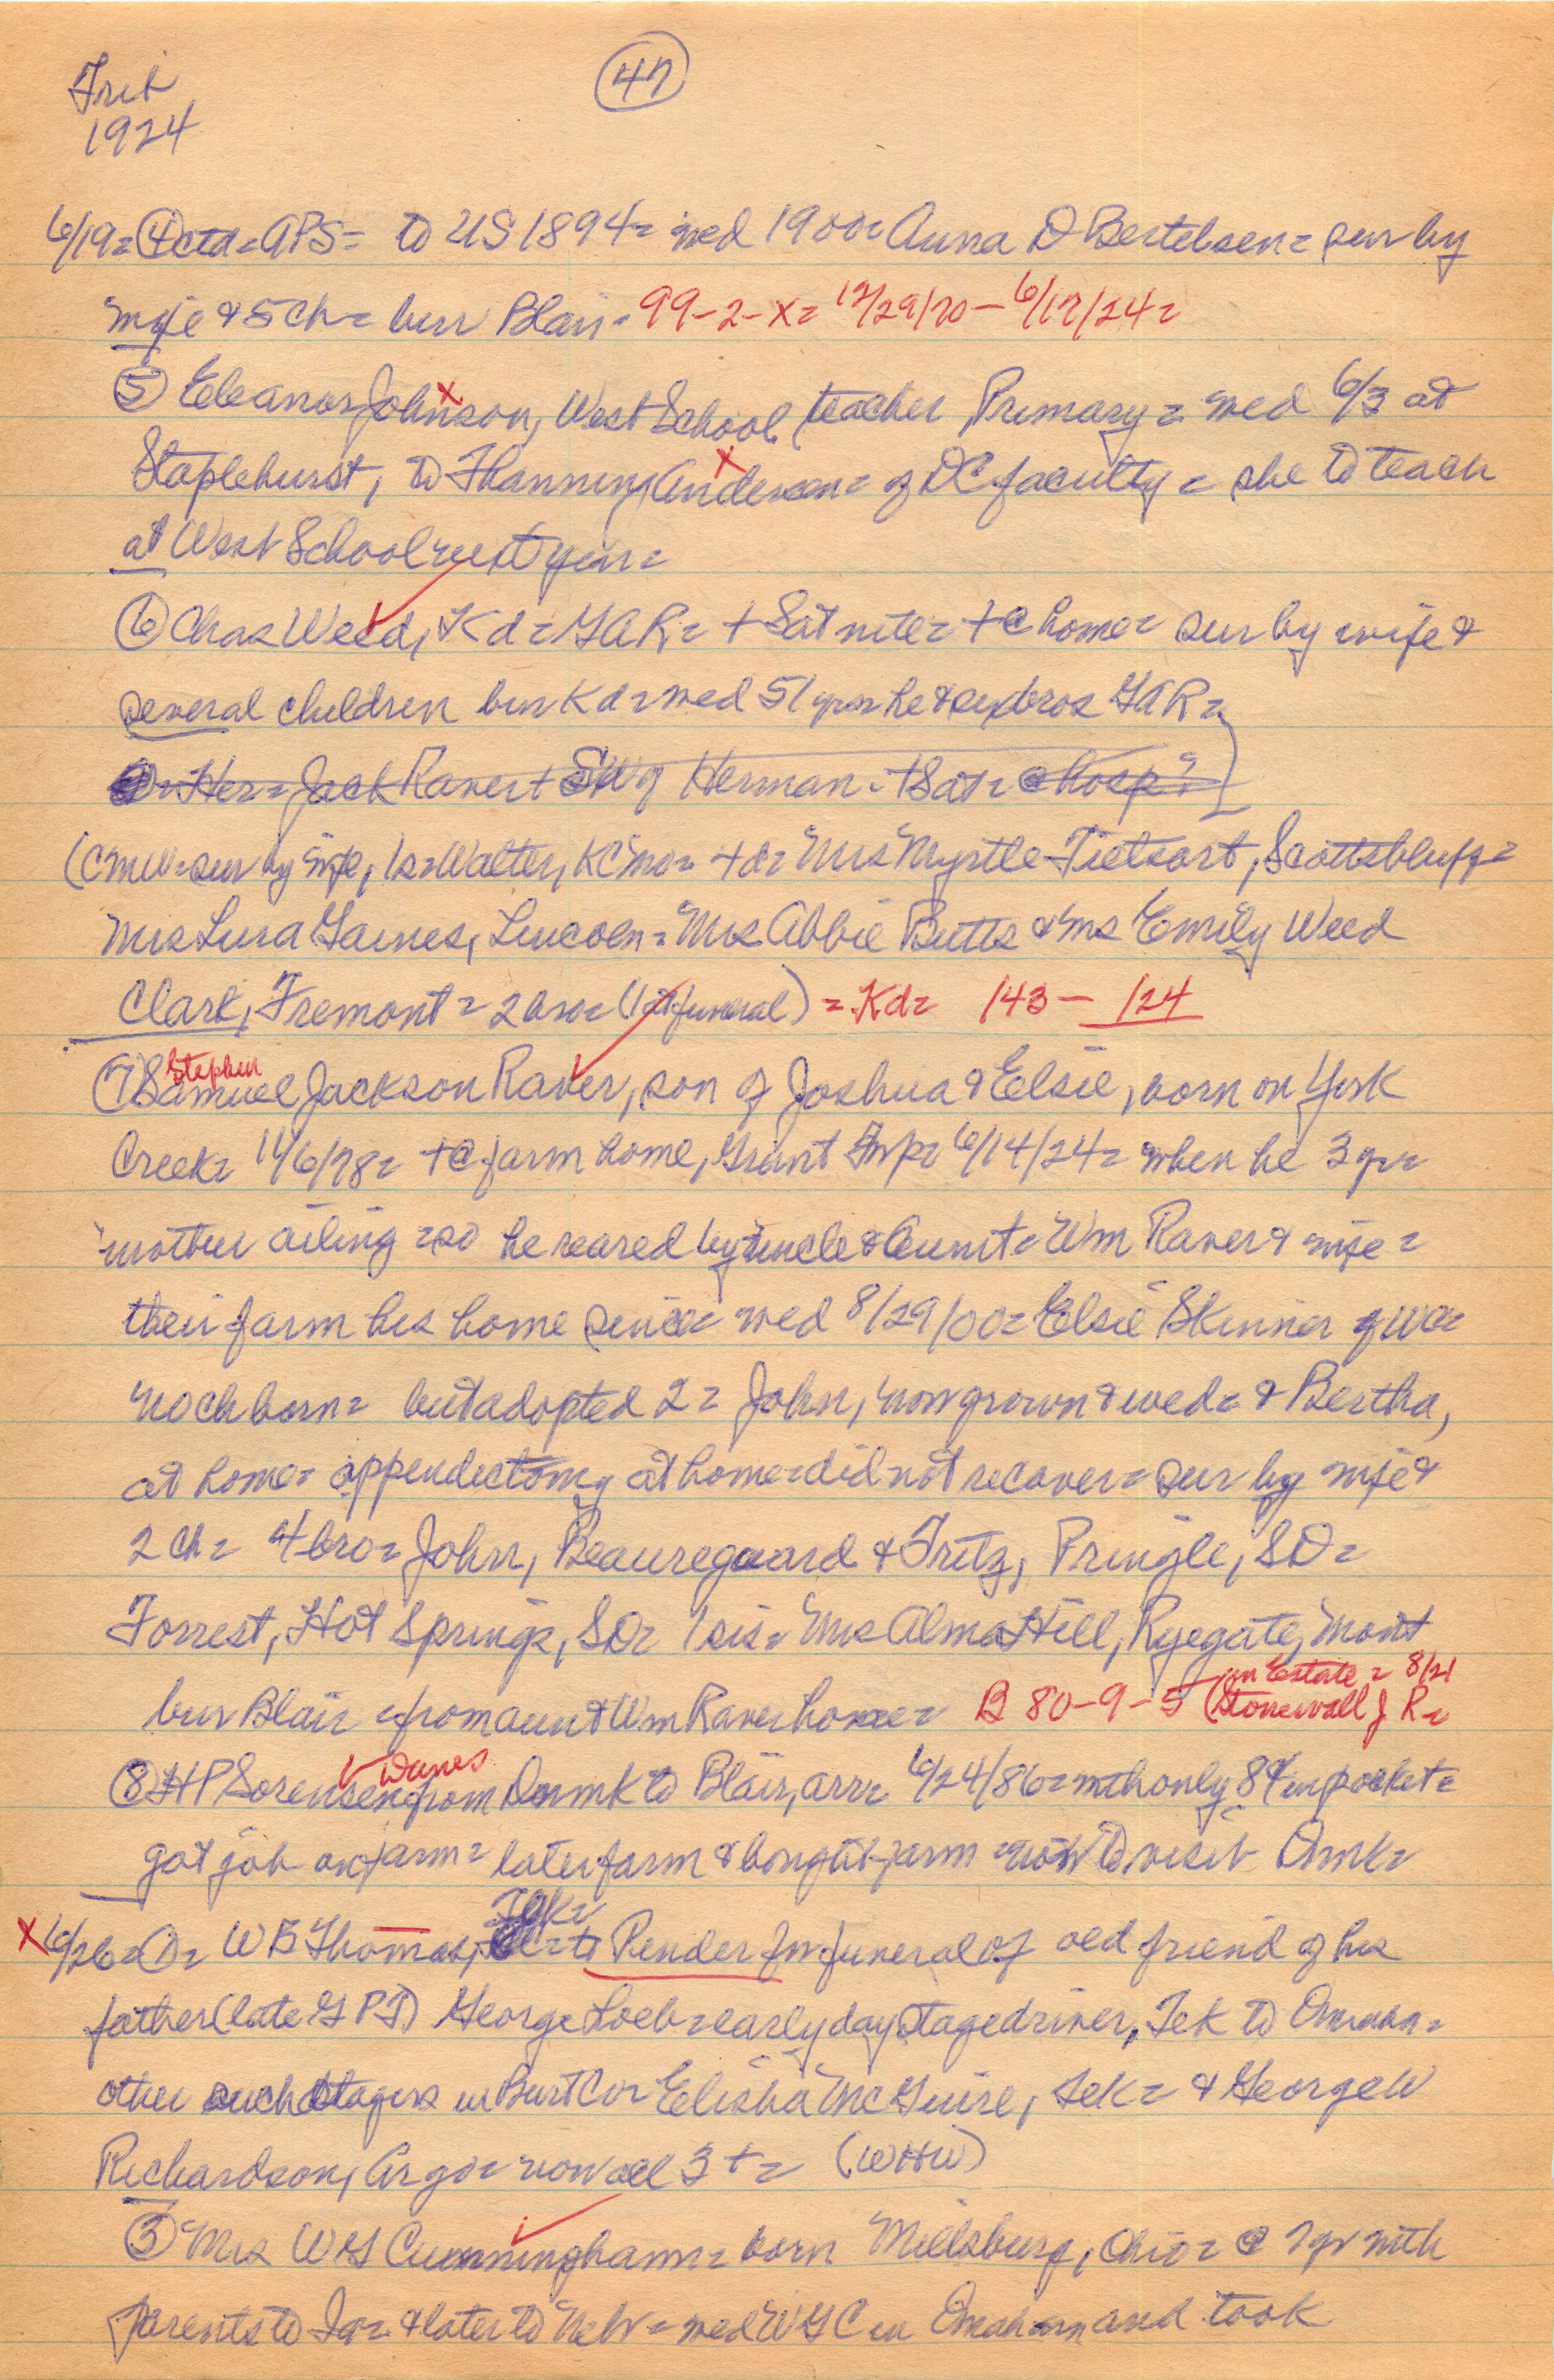 Trib
1924
47
6/19 = (4) ctd = APS = to US 1894 = wed 1900 = Anna D Bertelsen = sur by
wife & 5 ch = bur Blair - 99-2-x = 12/29/70 - 6/17/24 =
(5) Eleanor Johnson, West School teacher Primary = wed 6/3 at
Staplehurst, to Thanning Andersen = of DC faculty = she to teach
at West School next year =
(6) Chas Weed, Kd = GAR = + Sat nite = + @ home = sur by wife &
several children bur Kd = wed 51 yrs = he & six bros GAR =
Her = Jack Raver + SW of Herman - + Sat = @ hosp
(CMW = sur by wife, 1s = Walter, KC Mo = 4 d = Mrs Myrtle Tietsort, Scottsbluff =
Mrs Lura Gaines, Lincoln = Mrs Abbie Butts & Mrs Emily Weed
Clark, Fremont = 2 bro = (1 at funeral) = Kd = 143 - 124
(7) Samuel Stephen Jackson Raver, son of Joshua & Elsie, born on York
Creek = 11/6/78 = + @ farm home, Grant Twp = 6/14/24 = when he 3 yr =
mother ailing = so he reared by uncle & Aunt = Wm Raver & wife =
their farm his home since = wed 8/29/00 = Elsie Skinner of WC =
no ch born = but adopted 2 = John, now grown & wed = & Bertha,
at home = appendectomy at home = did not recover = sur by wife &
2 ch = 4 bro = John, Beauregaard & Fritz, Pringle, SD =
Forrest, Hot Springs, SD = 1 sis = Mrs Alma Hill, Ryegate, Mont
bur Blair = from aunt & Wm Raver home = B 80-9-5 (in Estate = 8/21 Stonewall J R =
(8) HP Sorensen Danes from Dnmk to Blair, arr = 6/24/86 = with only 8¢ in pocket =
got job on farm = later farm & bought farm = now to visit Dmk =
x 6/26 = (1) = W B Thomas, Tek = to Pender for funeral of old friend of his
father (late G P T) George Loeb = early day stage driver, Tek to Omaha =
other such stagers in Burt Co = Elisha McGuire, Tek = & George W
Richardson, Argo = now all 3 + = (WHW)
(3) Mrs W G Cunningham = born Millsburg, Ohio = @ 7 yr with
parents to Ia = & later to Neb = wed W G C in Omaha and took